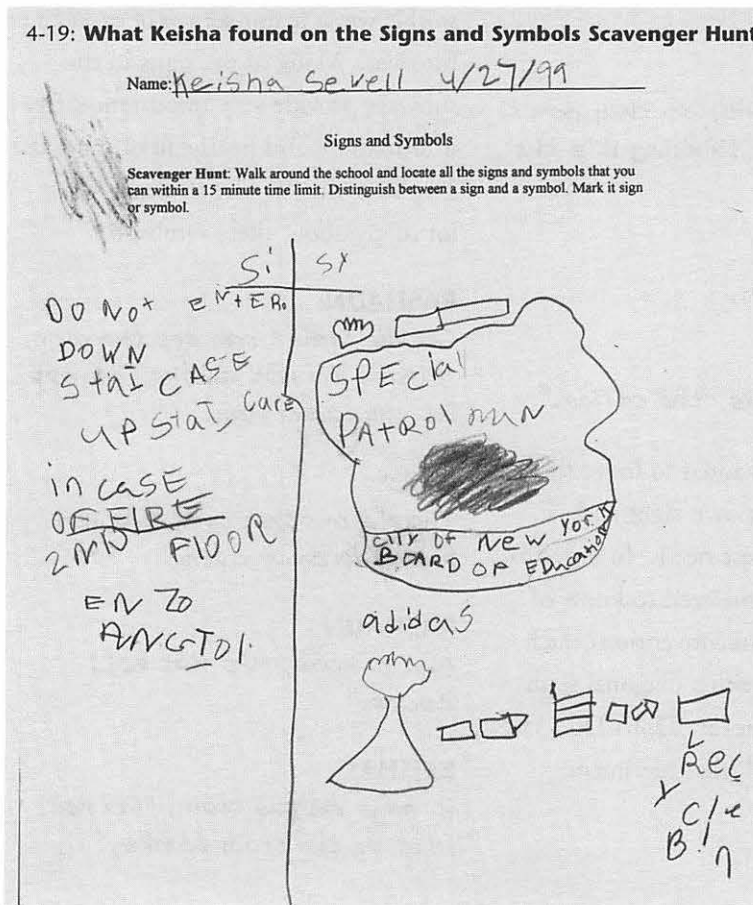 4-19: What Keisha found on the Signs and Symbols Scavenger Hunt
Name: Keisha Sevell 4/27/99
Signs and Symbols
Scavenger Hunt: Walk around the school and locate all the signs and symbols that you
can within a 15 minute time limit. Distinguish between a sign and a symbol. Mark it sign
or symbol.
Si
DO NOt ENtER.
DOWN
StaI CASE
UP StaI, Care
in CASE
OF FIRE
2 FLOOR
EN ZO
Sy
SPECial
PAtROl
City OF New York
BOARD OF EDucation
adidas
Rec
y
cle
Bin